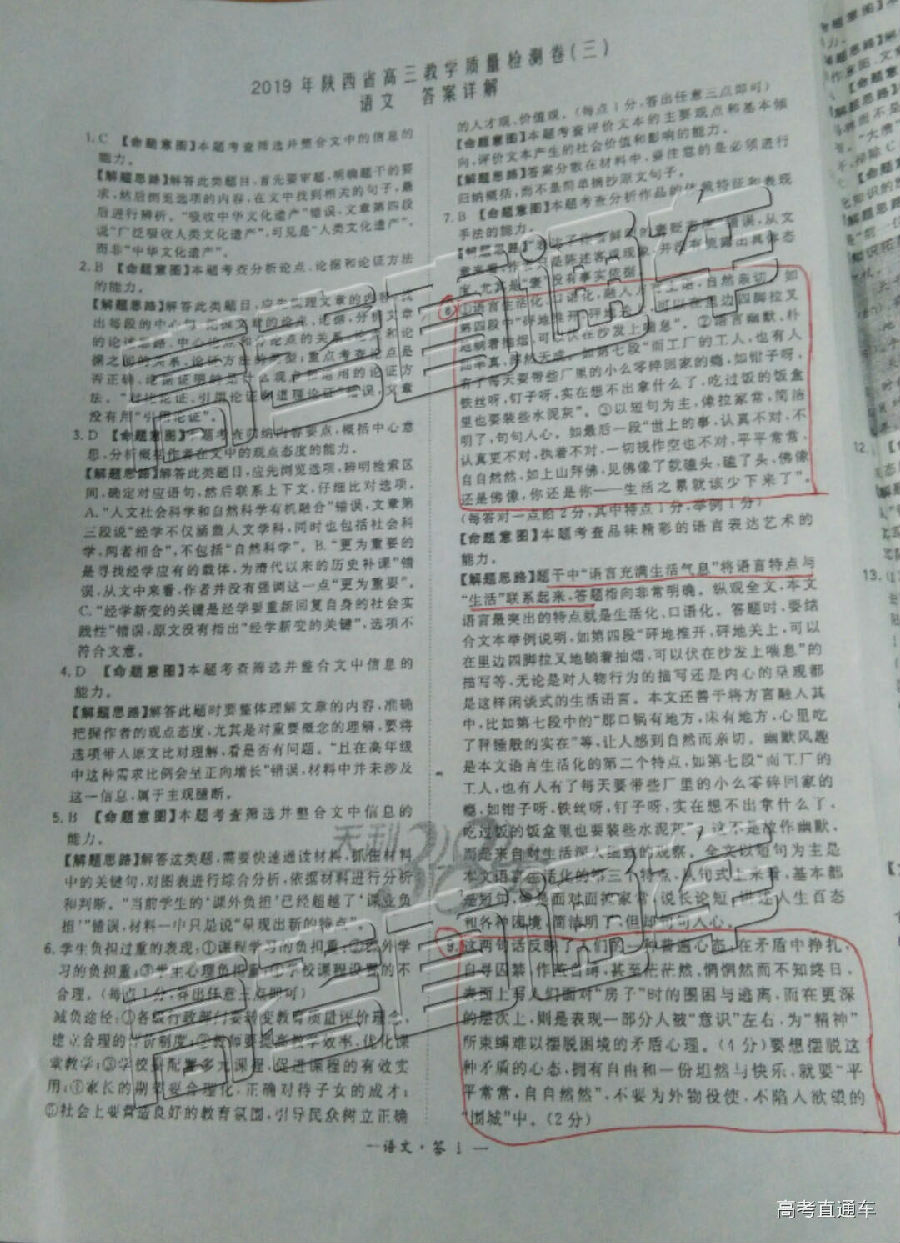 2019年陕西省高三教学质量检测卷(三)
语文 答案详解
1.C 【命题意图】本题考查筛选并整合文中的信息的
能力。
【解题思路】解答此类题目,首先要审题,明确题干的要
求,然后浏览选项的内容,在文中找到相关的句子,最
后进行辨析。“吸收中华文化遗产”错误,文章第四段
说“广泛吸收人类文化遗产”,可见是“人类文化遗产”,
而非“中华文化遗产”。
2.B 【命题意图】本题考查分析论点、论据和论证方法
的能力。
【解题思路】解答此类题目,应先梳理文章的内容,
出每段的中心句
的论证思路、中心论点和分论点的关系、
据之间的关系、论证方法的类型;重点考查论点是
否正确、
法。
没有用“引用论证”。
3.D 【命题意图】本题考查归纳内容要点,概括中心意
思,分析概括作者在文中的观点态度的能力。
【解题思路】解答此类题目,应先浏览选项,辨明检索区
间,确定对应语句,然后联系上下文,仔细比对选项。
A.“人文社会科学和自然科学有机融合”错误,文章第
三段说“经学不仅涵盖人文学科,同时也包括社会科
学,两者相合”,不包括“自然科学”。B.“更为重要的
是寻找经学应有的载体,为清代以来的历史补课”错
误,从文中来看,作者并没有强调这一点“更为重要”。
C.“经学新变的关键是经学要重新回复自身的社会实
践性”错误,原文没有指出“经学新变的关键”,选项不
符合文意。
4.D 【命题意图】本题考查筛选并整合文中信息的
能力。
【解题思路】解答此题时要整体理解文章的内容,准确
把握作者的观点态度,尤其是对重要概念的理解,要将
选项带入原文比对理解,看是否有问题。“且在高年级
中这种需求比例会呈正向增长”错误,材料中并未涉及
这一信息,属于主观臆断。
5.B 【命题意图】本题考查筛选并整合文中信息的
能力。
【解题思路】解答这类题,需要快速通读材料,抓住材料
中的关键句,对图表进行综合分析,依据材料进行分析
和判断。“当前学生的‘课外负担’已经超越了‘课业负
担’”错误,材料一中只是说“呈现出新的特点”。
6.学生负担过重的表现:①课程学习的负担重;②课外学
习的负担重;③学生心理负担重;④学校课程设置的不
合理。(每点1分,答出任意三点即可)
减负途径:①各级行政部门要转变教育质量评价理念,
建立合理的评价制度;②教师要提高教学效率,优化课
堂教学;③学校要配置多元课程,促进课程的有效实
用;④家长的期望要合理化,正确对待子女的成才;
⑤社会上要营造良好的教育氛围,引导民众树立正确
的人才观、价值观。(每点1分,答出任意三点即可)
【命题意图】本题考查评价文本的主要观点和基本倾
向,评价文本产生的社会价值和影响的能力。
【解题思路】答案分散在材料中,要注意的是必须进行
归纳概括,而不是简单摘抄原文句子。
7.B 【命题意图】本题考查分析作品的体裁特征和表现
手法的能力。
【解题思路】
8.①语言生活化、口语化,融入
第四段中“砰地推开,砰地关上,可以在里边四脚拉叉
地躺着抽烟,可以伏在沙发上喘息”。②语言幽默,朴
如第七段“而工厂的工人,也有人
有了每天要带些厂里的小么零碎回家的瘾,如钳子呀,
铁丝呀,钉子呀,实在想不出拿什么了,吃过饭的饭盒
里也要装些水泥灰”。③以短句为主,像拉家常,简洁
明了,句句人心。如最后一段“世上的事,认真不对,不
认真更不对,执着不对,一切视作空也不对,平平常常,
自自然然,如上山拜佛,见佛像了就磕头,磕了头,佛像
还是佛像,你还是你——生活之累就该少下来了”。
(每答对一点给2分,其中特点1分,举例1分)
【命题意图】本题考查品味精彩的语言表达艺术的
能力。
【解题思路】题干中“语言充满生活气息”将语言特点与
“生活”联系起来,答题指向非常明确。纵观全文,本文
语言最突出的特点就是生活化、口语化。答题时,要结
合文本举例说明,如第四段“砰地推开,砰地关上,可以
在里边四脚拉叉地躺着抽烟,可以伏在沙发上喘息”的
描写等,无论是对人物行为的描写还是内心的呈现都
是这样闲谈式的生活语言。本文还善于将方言融入其
中,比如第七段中的“那口锅有地方,床有地方,心里吃
了秤锤般的实在”等,让人感到自然而亲切。幽默风趣
是本文语言生活化的第二个特点,如第七段“而工厂的
工人,也有人有了每天要带些厂里的小么零碎回家的
瘾,如钳子呀,铁丝呀,钉子呀,实在想不出拿什么了,
吃过饭的饭盒里也要装些水泥灰”,这不是故作幽默,
而是来自对生活深入细致的观察。全文以短句为主是
本文语言生活化的第三个特点,从句式上来看,基本都
是短句,像是面对面拉家常,说长论短,讲述人生百态
和各种困境,简洁明了,但却句句人心。
9.这两句话反映了人们的一种普遍心态,在矛盾中挣扎,
自寻囚禁,作茧自缚,甚至茫茫然,惴惴然而不知终日,
表面上书人们面对“房子”时的围困与逃离,而在更深
的层次上,则是表现一部分人被“意识”左右,为“精神”
所束缚难以摆脱困境的矛盾心理。(1分)要想摆脱这
种矛盾的心态,拥有自由和一份坦然与快乐,就要“平
平常常,自自然然”,不要为外物役使,不陷入欲望的
“围城”中。(2分)
—语文·答 1—
天利38套
高考直通车
高考直通车
高考直通车
12.
13.